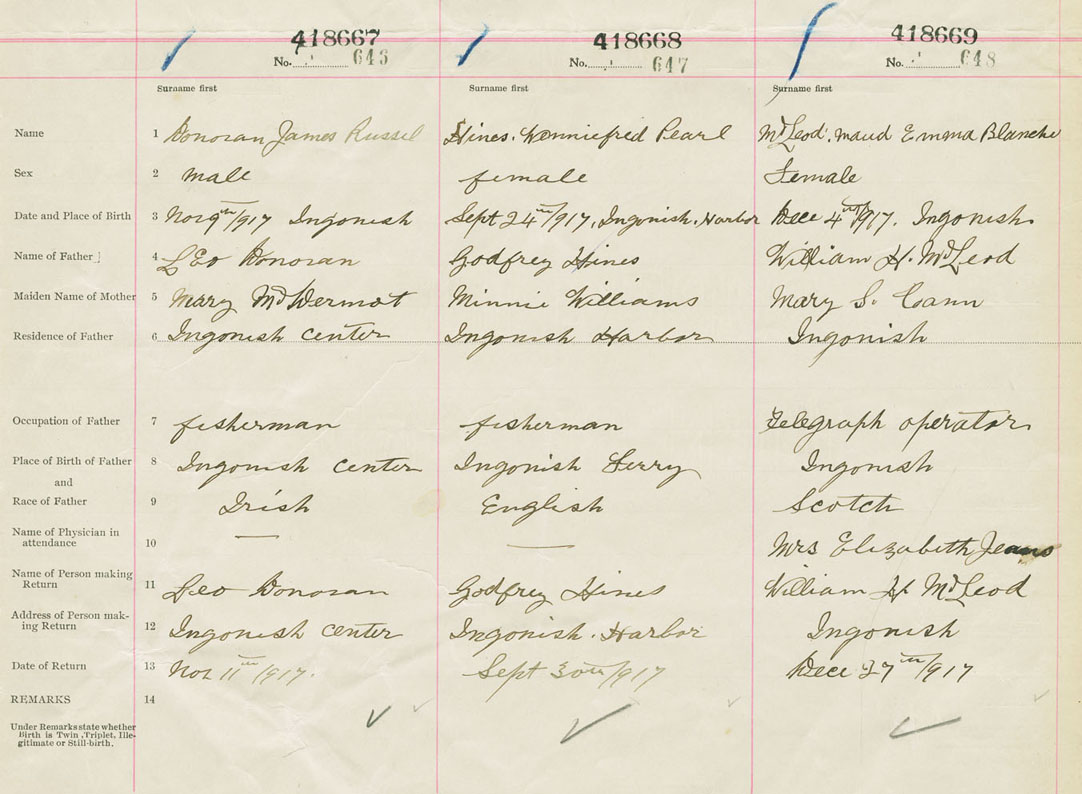 418667 418668 418669
No. 646 No. 647 No. 648
Surname first Surname first Surname first
Name 1 Donovan James Russel Hines. Wenniefred Pearl McLeod. Maud Emma Blanche
Sex 2 Male female Female
Date and Place of Birth 3 Nov 9th/917 Ingonish Sept 24th/917. Ingonish. Harbor Dece 4th/917. Ingonish
Name of Father 4 LEo Donovan Godfrey Hines William H. McLeod
Maiden Name of Mother 5 Mary McDermot Minnie Williams Mary S. Cann
Residence of Father 6 Ingonish center Ingonish Harbor Ingonish
Occupation of Father 7 fisherman fisherman Telegraph operator
Place of Birth of Father 8 Ingonish center Ingonish Ferry Ingonish
and
Race of Father 9 Irish English Scotch
Name of Physician in
attendance 10 — — Mrs Elizabeth Jeans
Name of Person making
Return 11 Leo Donovan Godfrey Hines William H McLeod
Address of Person mak-
ing Return 12 Ingonish center Ingonish. Harbor Ingonish
Date of Return 13 Nov 11th/917. Sept 30th/917 Dece 27th/917
REMARKS 14
Under Remarks state whether
Birth is Twin, Triplet, Ille-
gitimate or Still-birth.